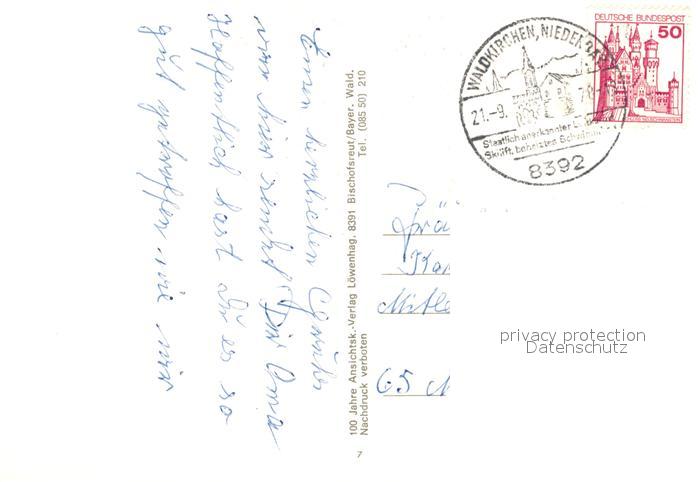 Einen herzlichen Gruß
von hier sendet Dir Oma
Hoffentlich hast Du es so
gut getroffen wie wir
100 Jahre Ansichtsk.-Verlag Löwenhag, 8391 Bischofsreut/Bayer. Wald.
Tel. (085 50) 210
Nachdruck verboten
7
WALDKIRCHEN, NIEDERBAY
21.-9.
Staatlich anerkannter
Skilift, beheiztes
8392
DEUTSCHE BUNDESPOST
50
Frä
Mitle
65 M
privacy protection
Datenschutz